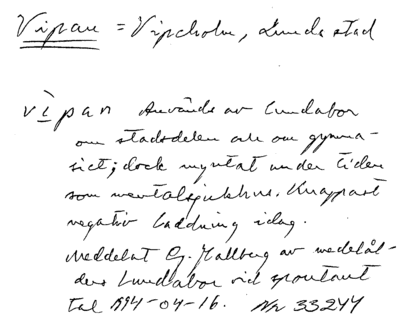 Vipan = Vipeholm, Lunds stad
vipan Används av lundabor
om stadsdelen och om gymna-
siet; dock myntat under tiden
som mentalsjukhus. Knappast
negativ laddning idag.
Meddelat G. Hallberg av medelål-
ders lundabor vid spontant
tal 1994-04-16. Nr 33244